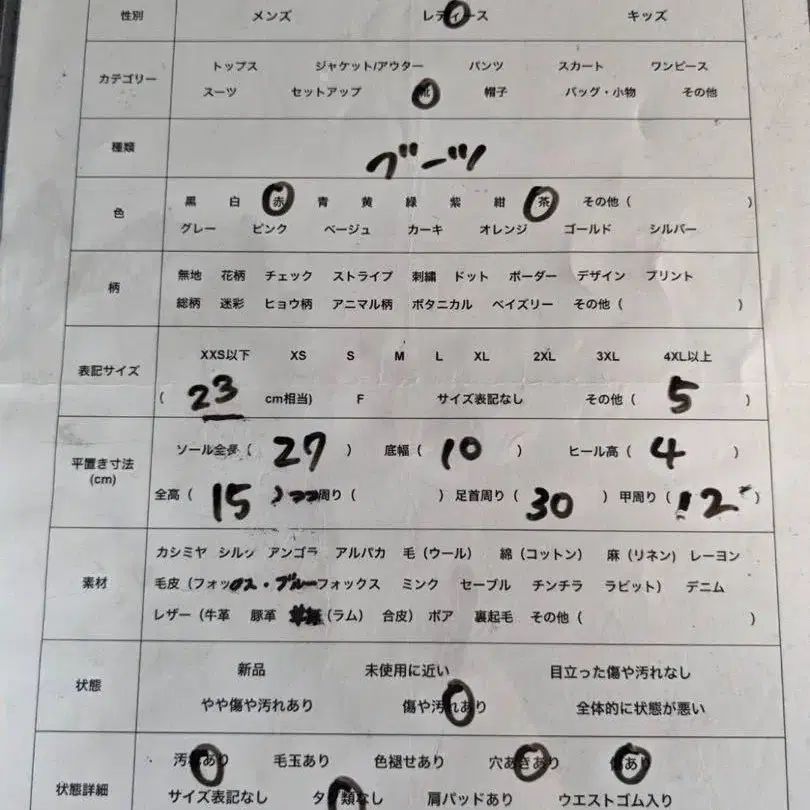 性別 メンズ レディース キッズ
カテゴリー
トップス ジャケット/アウター パンツ スカート ワンピース
スーツ セットアップ 靴 帽子 バッグ・小物 その他
種類 ブーツ
色
黒 白 赤 青 黄 緑 紫 紺 茶 その他( )
グレー ピンク ベージュ カーキ オレンジ ゴールド シルバー
柄
無地 花柄 チェック ストライプ 刺繍 ドット ボーダー デザイン プリント
総柄 迷彩 ヒョウ柄 アニマル柄 ボタニカル ペイズリー その他( )
表記サイズ
XXS以下 XS S M L XL 2XL 3XL 4XL以上
( 23 cm相当) F サイズ表記なし その他( 5 )
平置き寸法
(cm)
ソール全長( 27 ) 底幅( 10 ) ヒール高( 4 )
全高( 15 ) 周り( ) 足首周り( 30 ) 甲周り( 12 )
素材
カシミヤ シルク アンゴラ アルパカ 毛(ウール) 綿(コットン) 麻(リネン) レーヨン
毛皮(フォックス・ブルーフォックス ミンク セーブル チンチラ ラビット) デニム
レザー(牛革 豚革 (ラム) 合皮) ボア 裏起毛 その他( )
状態
新品 未使用に近い 目立った傷や汚れなし
やや傷や汚れあり 傷や汚れあり 全体的に状態が悪い
状態詳細
汚れあり 毛玉あり 色褪せあり 穴あきあり あり
サイズ表記なし タグ類なし 肩パッドあり ウエストゴム入り